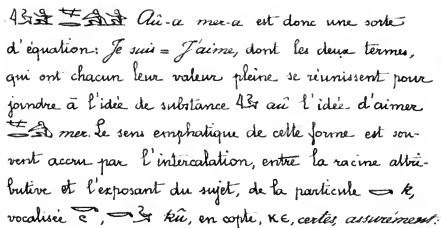 Aû-a mer-a est donc une sorte
d'équation: Je suis = J'aime, dont les deux termes,
qui ont chacun leur valeur pleine se réunissent pour
joindre à l'idée de substance aû l'idée d'aimer
mer. Le sens emphatique de cette forme est sou-
vent accru par l'intercalation, entre la racine attri-
butive et l'exposant du sujet, de la particule k,
vocalisée , kû, en copte, ⲕⲉ, certes, assurément.